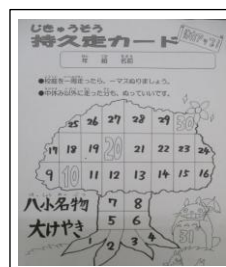 じきゅうそう
持久走カード
年 組 名前
●校庭を一周走ったら、一マスぬりましょう。
●中休み以外に走った分も、ぬっていいです。
25 26 27 28 29 30
17 18 19 20 21 22 23 24
9 10 11 12 13 14 15 16
八小名物
大けやき
7 8
5 6
1 2 3 4
31